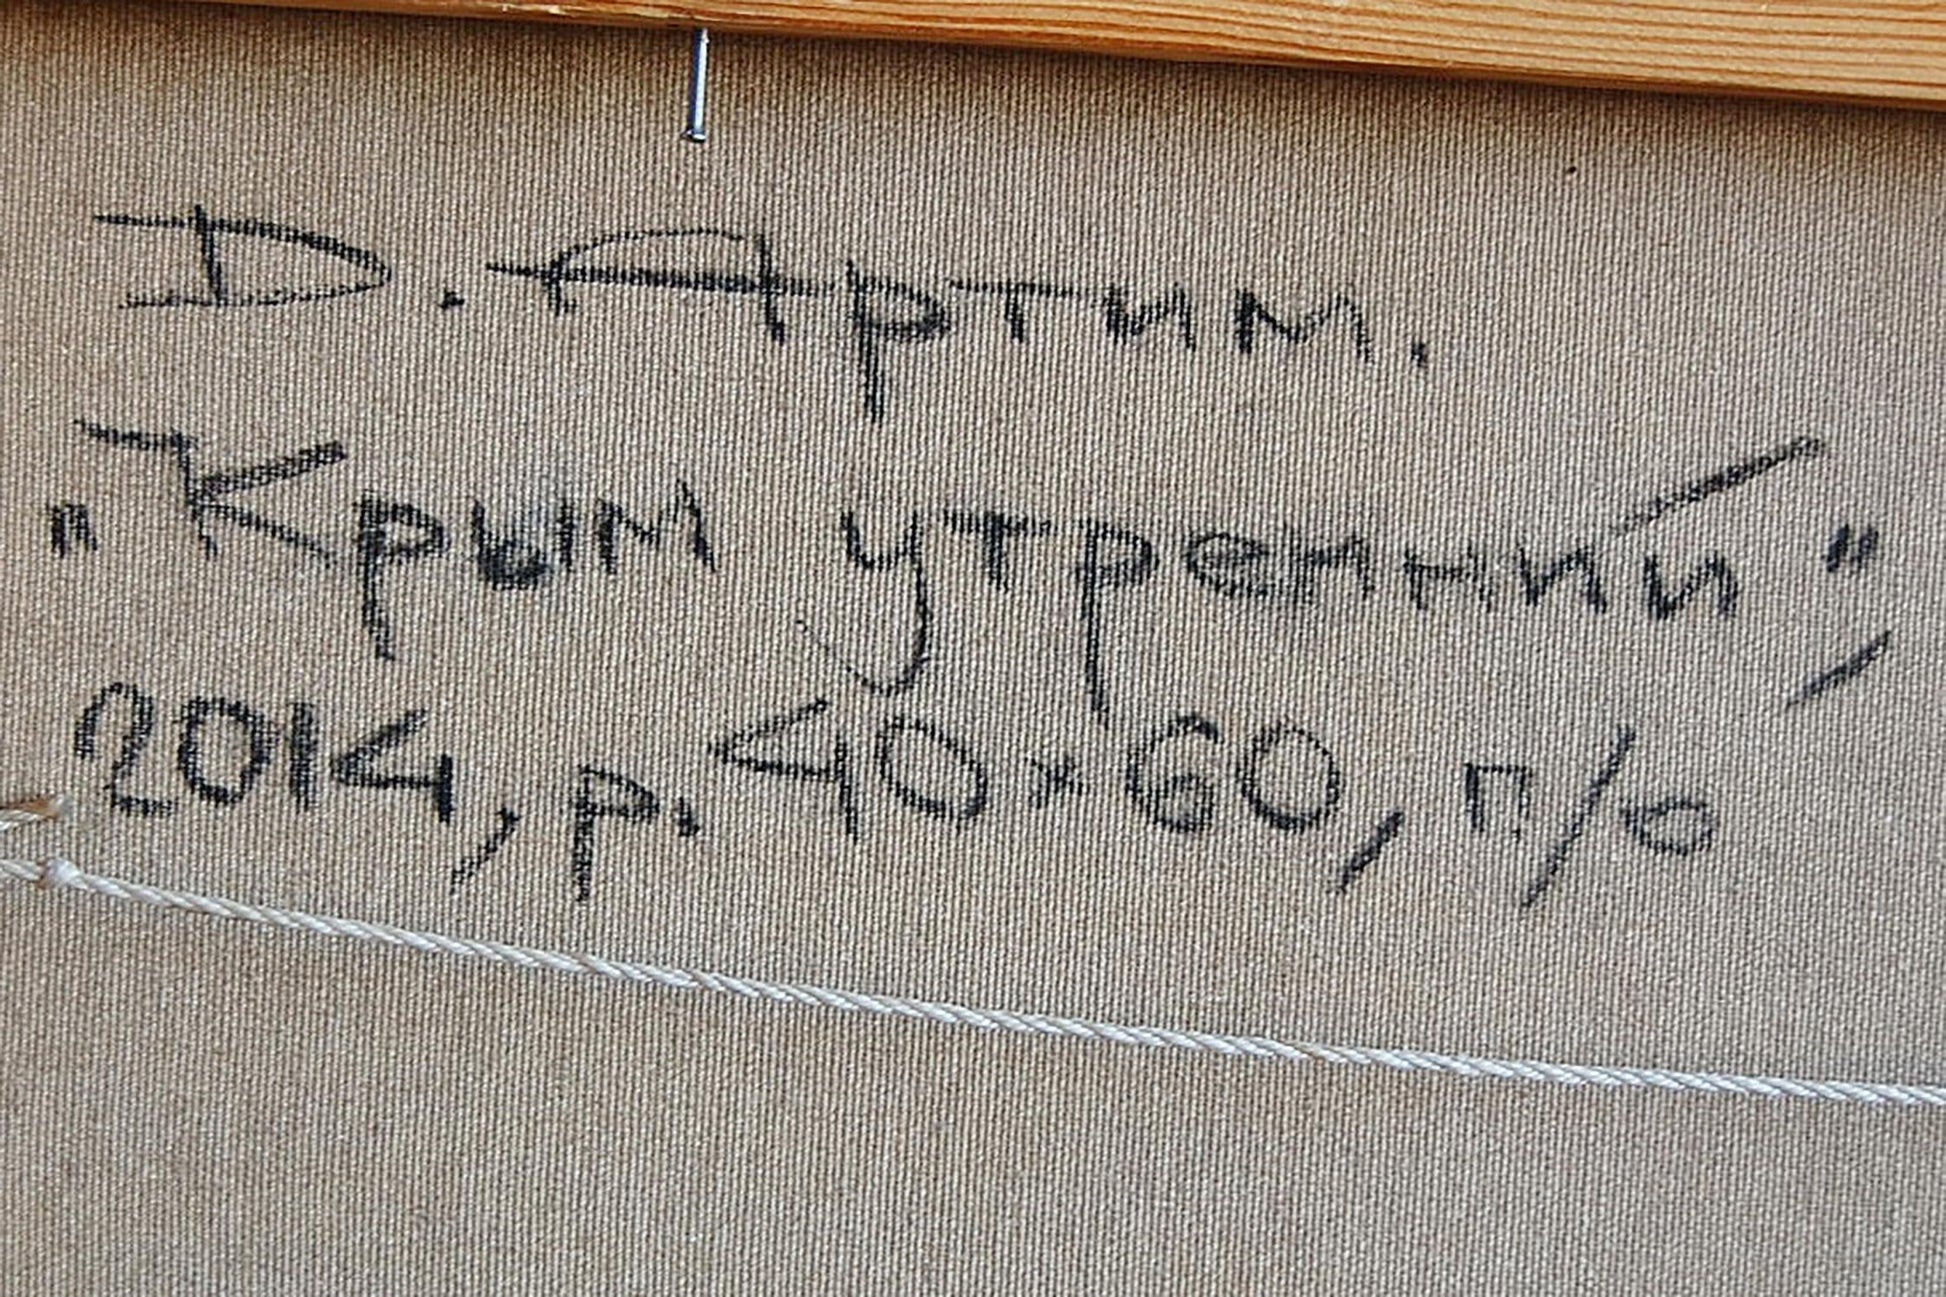 D. Артим.
"Крым утренний",
2014, р. 40×60, п/о